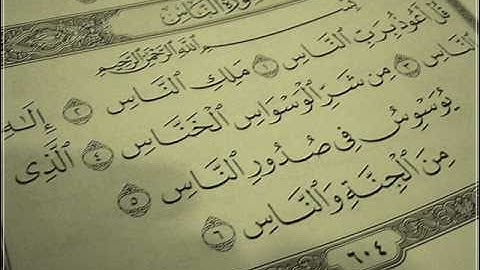 سُورَةُ النَّاسِ
بِسْمِ اللَّهِ الرَّحْمَٰنِ الرَّحِيمِ
قُلْ أَعُوذُ بِرَبِّ النَّاسِ ١ مَلِكِ النَّاسِ ٢ إِلَٰهِ
النَّاسِ ٣ مِن شَرِّ الْوَسْوَاسِ الْخَنَّاسِ ٤ الَّذِي
يُوَسْوِسُ فِي صُدُورِ النَّاسِ ٥
مِنَ الْجِنَّةِ وَالنَّاسِ ٦
٦٠٤